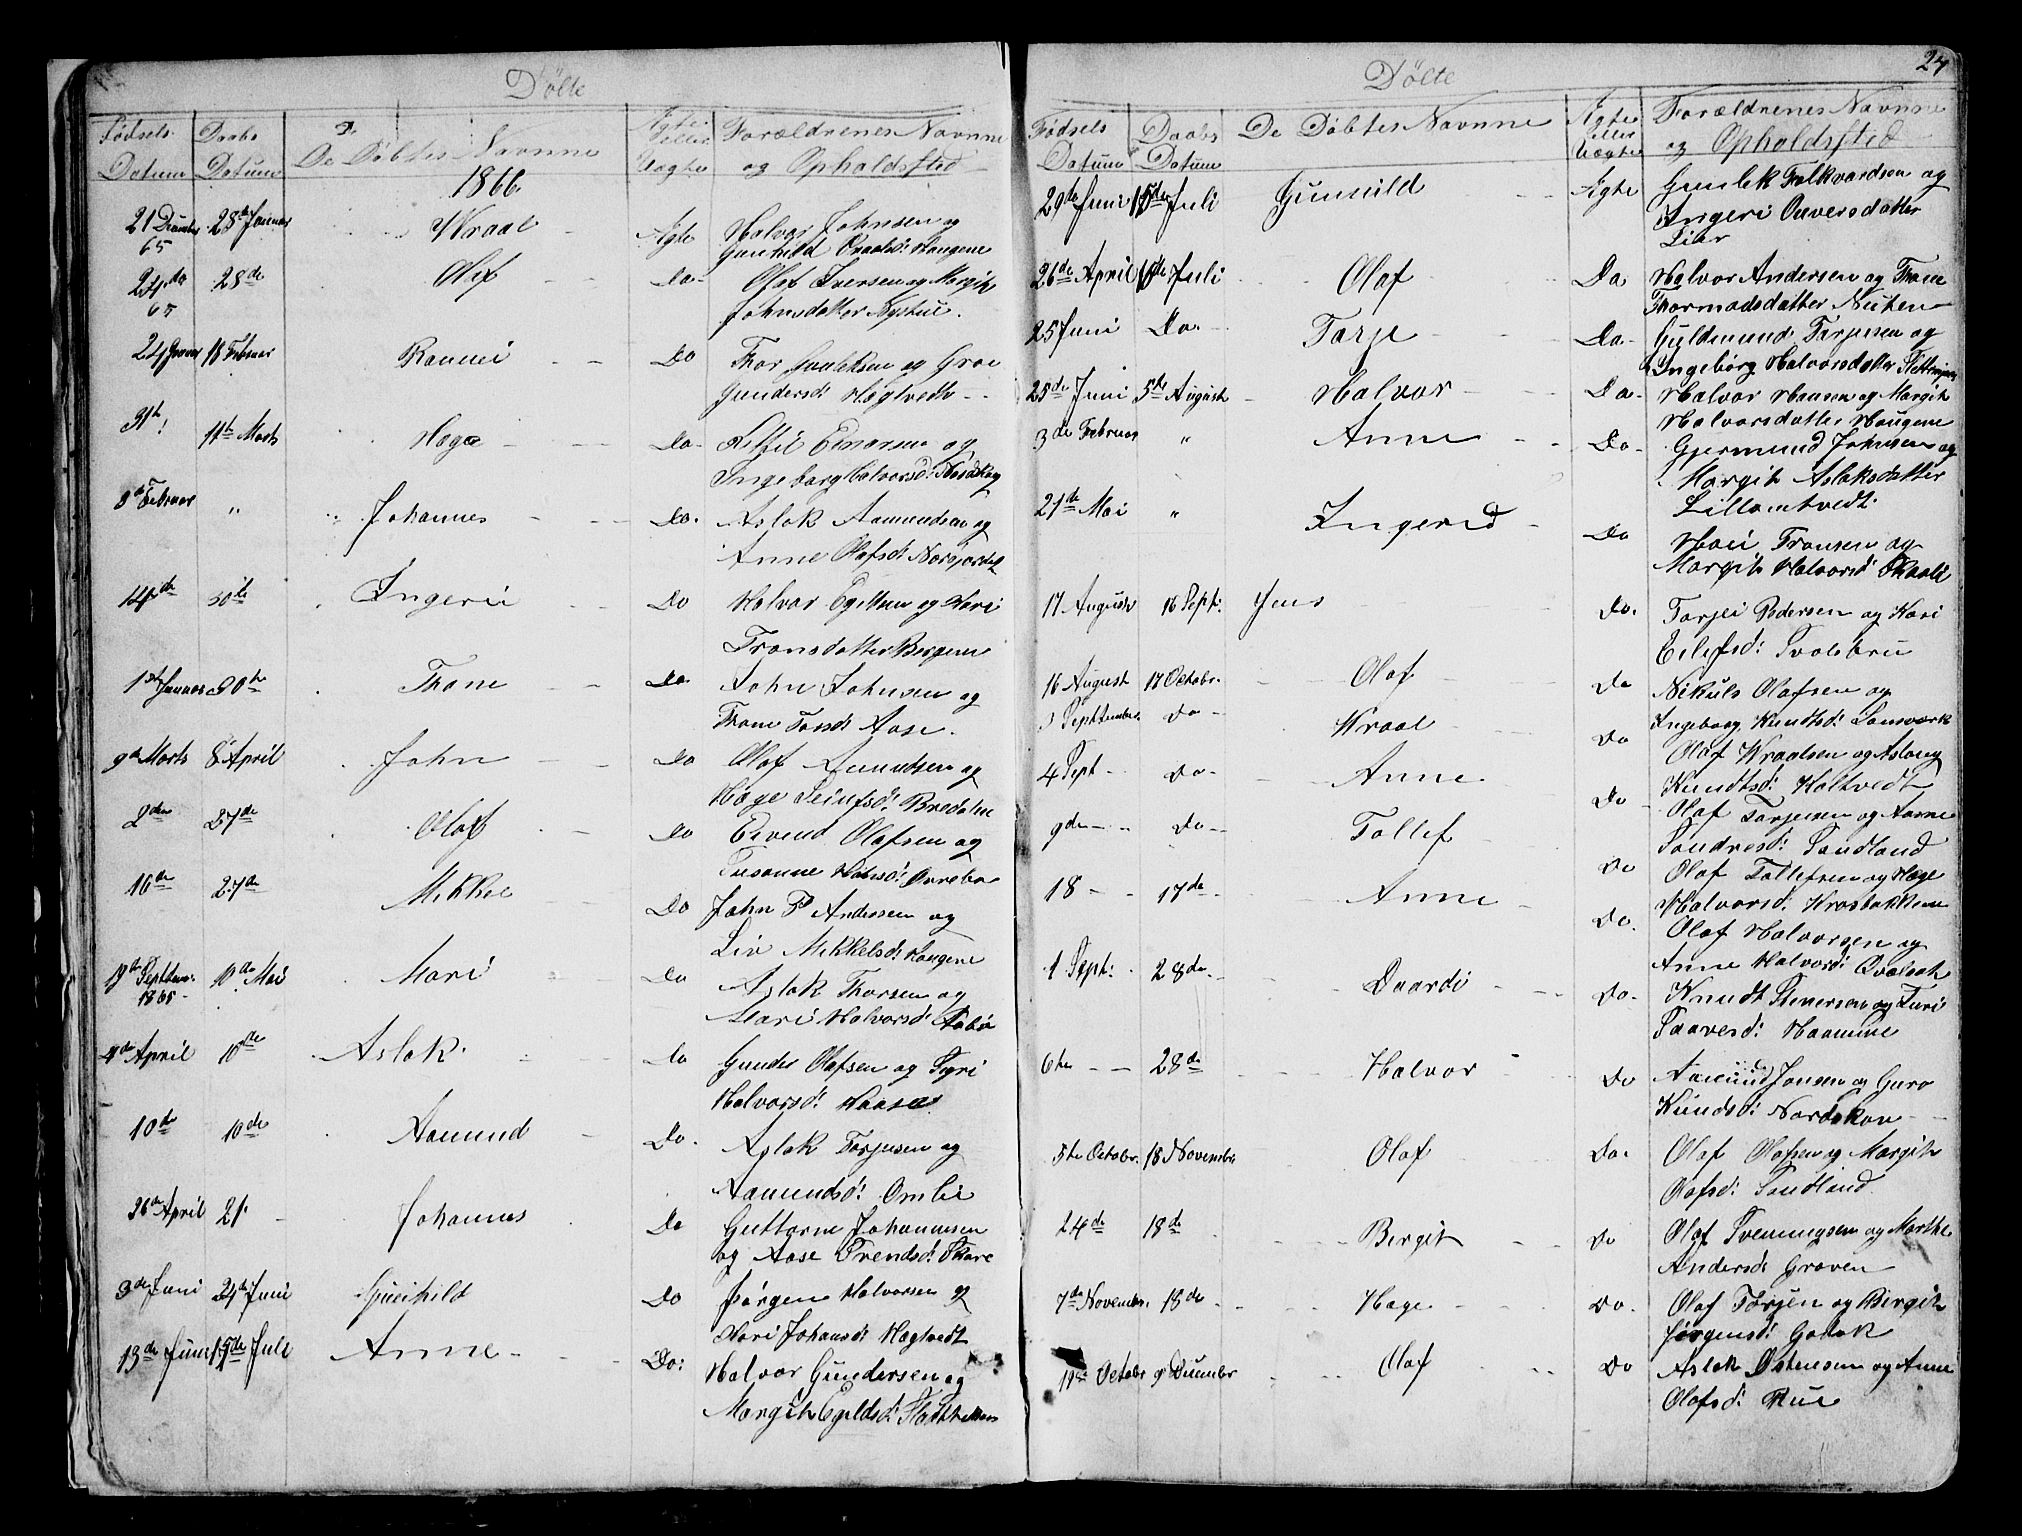 Döbte
Fødsels Datum
Daabs Datum
De Døbtes Navnne
Ægte eller Uægte
Forældrenes Navnne
og Opholdssted
1866
21 December 65 28de Januar Wraal Ægte Halvor Johnsen og
Gunhild Wraalsd: Haugene
24de 65 28de Olef Do Olaf Iversen og Margit
Johnsdatter Nystue.
24 Januar 18 Februar Rannei Do Thor Gunleksen og Groe
Gundersd: Hægtvedt
31th 11th Marts Hæge Do Kittil Einarsen og
Ingeborg Halvorsd:
3de Februar " Johannes Do. Aslak Aamundsen og
Anne Olafsd:
14de 30te Ingerii Do Halvor Egilsen og Kari
Transdatter Bergene
1ste Januar 30te Thone Do John Johnsen og
Thone Aase.
9de Marts 8 April John Do Olaf Amundsen og
Hæge Leifsd: Bredalen
2den 27de Olaf Do Eivend Olafsen og
Susanne Orrebø
16de 27de Mikkel Do John P Anderssen og
Liv Mikkelsd: Haugene
19de Septbr. 1865 10de Mai Mari Do Aslak Thorsen og
Mari Halvorsd:
4de April 10de Aslak Do Gunder Olafsen og Sigri
Halvorsd: Haasæl
10de 10de Aamund Do. Aslak Torjusen og
Aamundsd: Omlie
26de April 21. Johannes Do Guttorm Johannesen
og Aase Svendsd: Skare
3de Juni 24de Juni Gunhild Do Jørgen Halvorsen og
Kari Johansd: Hægtvedt
13de Juni 15de Juli Anne Do: Halvor Gundersen og
Margit Egildsd:
24
Döbte
Fødsels Datum
Daabs Datum
De Døbtes Navnne
Ægte eller Uægte
Forældrenes Navnne
og Opholdssted
29de Juni 15de Juli Gunnild Ægte Gunlek Folkvardsen og
Ingeri Ouversdatter
Lier
26de April 15de Juli Olaf Do Halvor Andersen og Thone
Thormodsdatter Nuten
25 Juni Do. Tarje Do. Guldmund Tarjesen og
Ingeborg Halvorsdatter
25de Juni 5te August Halvor Do. Halvor Hansen og Margit
Halvorsdatter Haugene
3de Februar " Anne Do. Gjermund Johnsen og
Margit Aslaksdatter
Lilleomtvedt
21de Mai " Ingerid Do Hoie Transen og
Margit Halvorsd:
17 August 16 Sept: Jens Do. Torjei Pedersen og Kari
Eilefsd: Svalebru
16 August 17 Octobr. Olaf Do Nikuls Olafsen og
Ingeborg Knudtsd:
3 Septtember Do Wraal Do Olaf Wraalsen og Aslaug
Knudtsd: Holtvedt
4 Sept Do Anne Do Olaf Torjusen og Aanne
Søndresd: Sandland
9de Do Tollef Do Olaf Tollefsen og Hæge
Halvorsd: Krosbakken
18 17de Anne Do. Olaf Halvorsen og
Anne Halvorsd:
1 Sept: 28de Daardi Do. Knudt Stenersen og Turi
Saavesd: Haamme
6te 28de Halvor Do Aamund Jonsen og Guro
Knudsd: Nordskow
5te Octobr. 18 Novembr Olaf Do. Olaf Olafsen og Margit
Olafsd: Sandland
24de 18de Bergit Do Olaf Svenungsen og Marthe
Andersd: Graven
7de Novembr. 18de Hæge Do. Olaf Torjen og Bergit
Jørgensd:
19de Octobr 9 Decembr Olaf Do Aslak Østensen og Anne
Olafsd: Rue